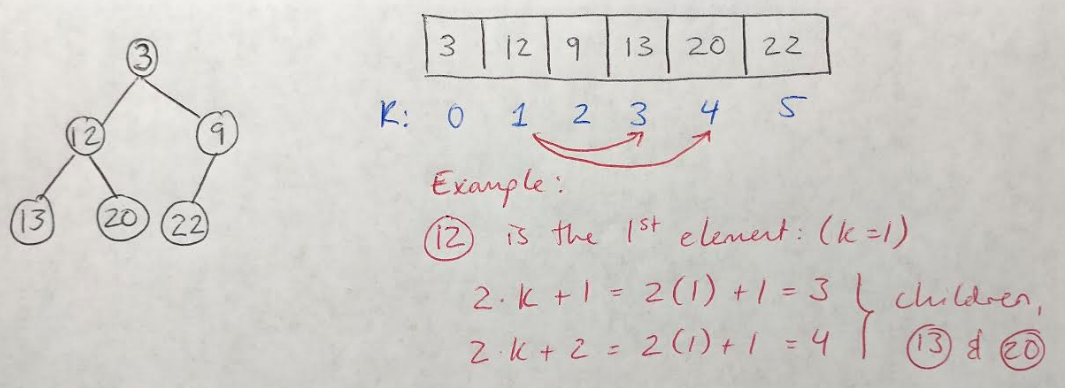 3
12 9
13 20 22
3 12 9 13 20 22
K: 0 1 2 3 4 5
Example:
12 is the 1st element: (k=1)
2·k + 1 = 2(1) + 1 = 3
2·k + 2 = 2(1) + 1 = 4
children,
13 & 20